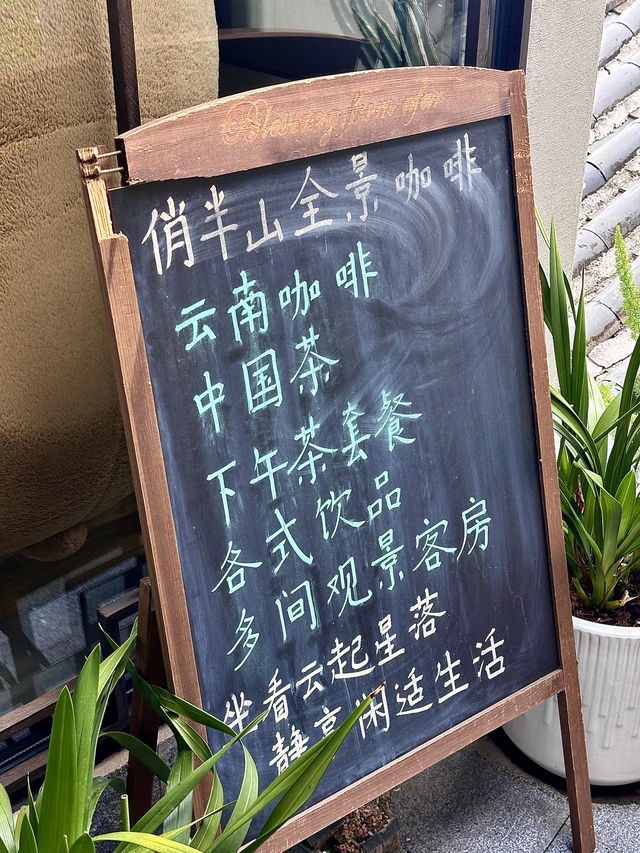 Blessing from afar
俏半山全景咖啡
云南咖啡
中国茶
下午茶套餐
各式饮品
多间观景客房
坐看云起星落
静享闲适生活